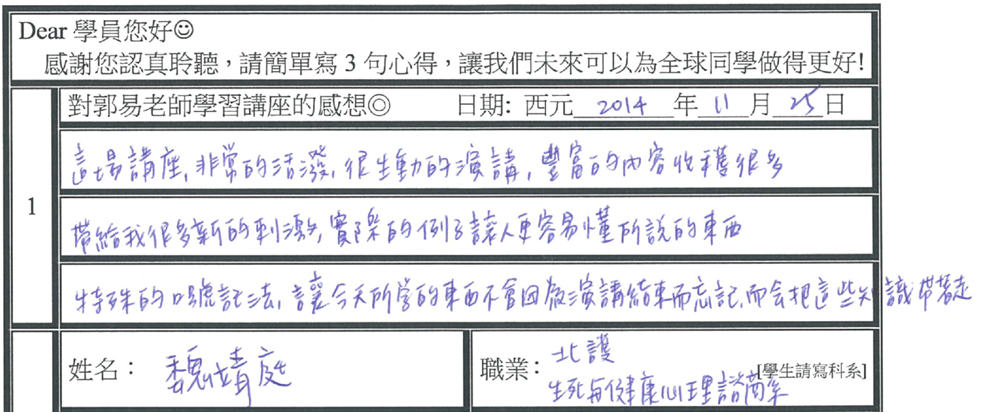 Dear 學員您好☺
感謝您認真聆聽,請簡單寫 3 句心得,讓我們未來可以為全球同學做得更好!
對郭易老師學習講座的感想◎ 日期: 西元 2014 年 11 月 25 日
1
這場講座,非常的活潑,很生動的演講,豐富的內容收穫很多
帶給我很多新的刺激,實際的例子讓人更容易懂所說的東西
特殊的口號記法,讓今天所學的東西不會因為演講結束而忘記,而会把這些知識帶著走
姓名: 魏靖庭
職業: 北護
生死與健康心理諮商系
[學生請寫科系]